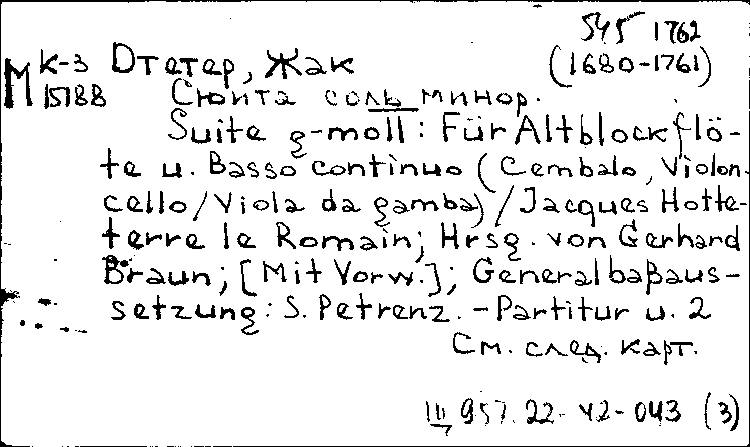 545 1762
М К-3 Отетер, Жак (1680-1761)
15188 Сюита соль минор.
Suite g-moll: Für Altblockflö-
te u. Basso continuo (Cembalo, Violon-
cello/Viola da gamba)/Jacques Hotte-
terre le Romain; Hrsg. von Gerhard
Braun; [Mit Vorw.]; Generalbaßaus-
setzung: S. Petrenz. - Partitur u. 2
См. след. карт.
957. 22- 42-043 (3)